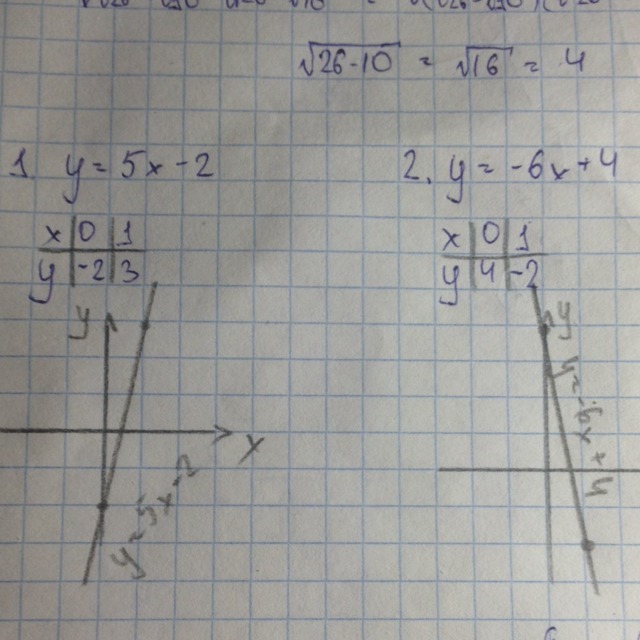 √26-10 = √16 = 4
1 y = 5x - 2
x 0 1
y -2 3
y
x
y=5x-2
2. y = -6x + 4
x 0 1
y 4 -2
y